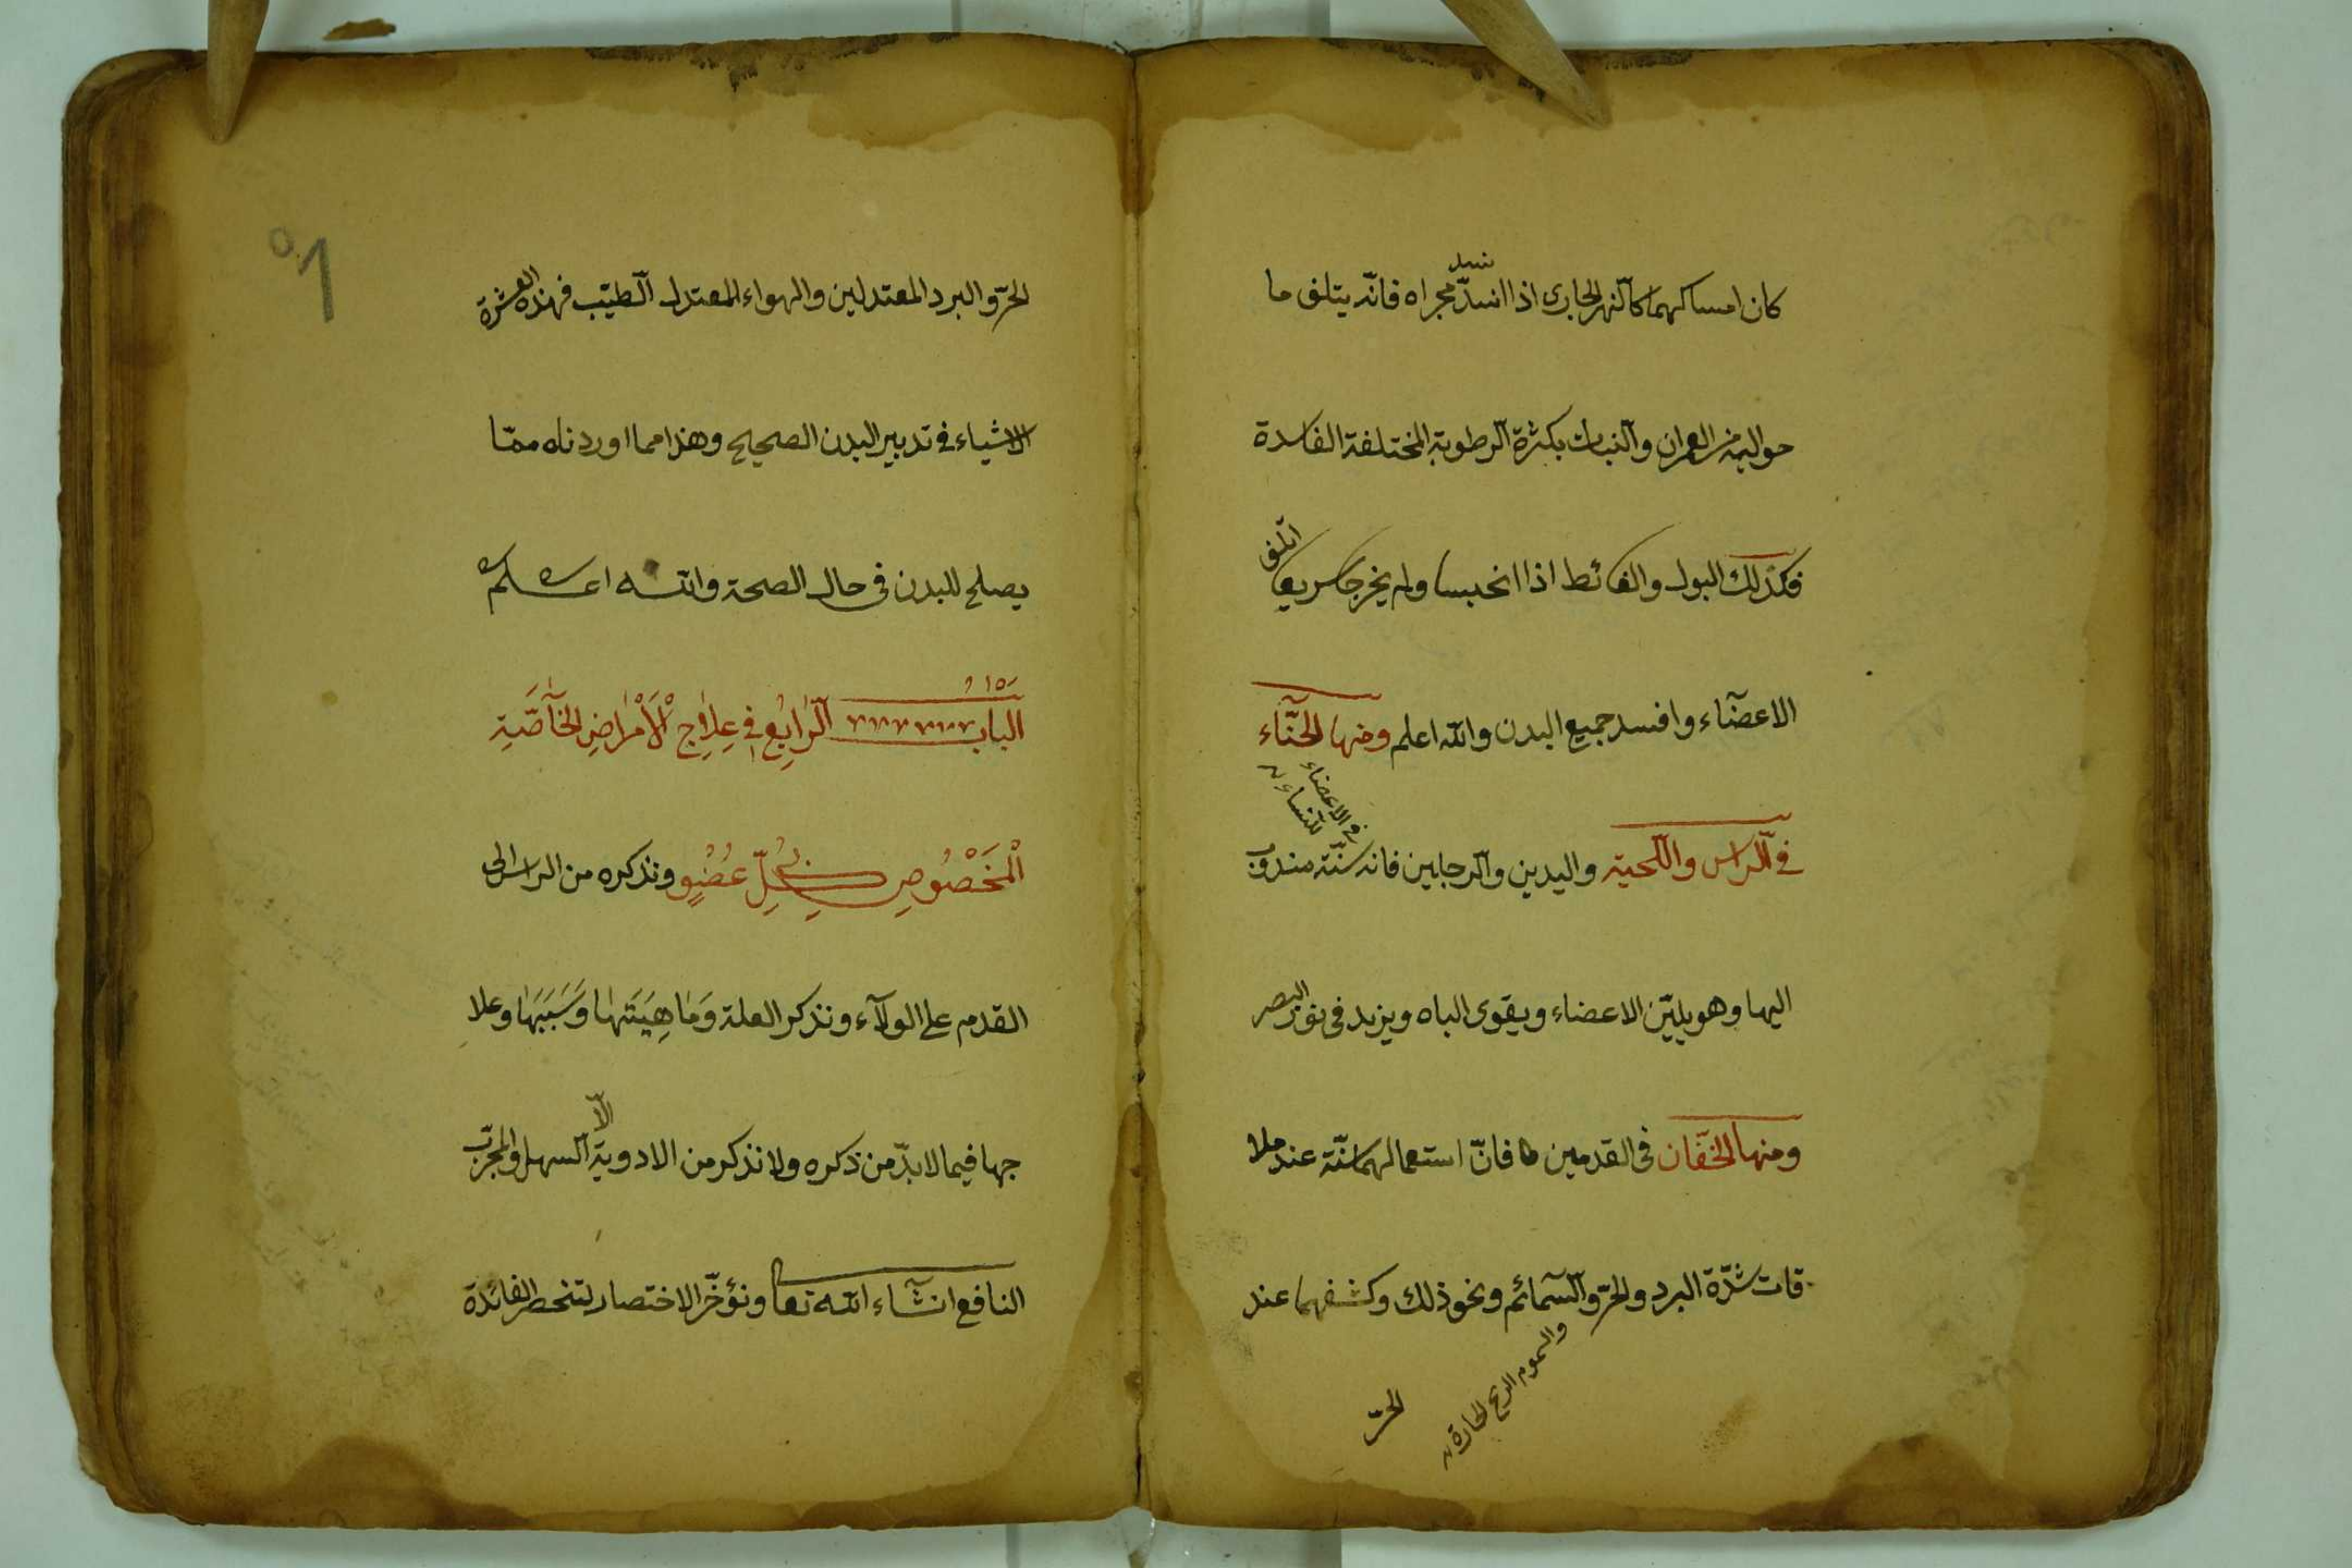 كان امساكهما كالنهر الجارى اذا انسدّ مجراه فانّه يتلف ما
نسد
حواليه من العمران والنبات بكثرة الرطوبة المختلفة الفاسدة
فكذلك البول والغائط اذا انحبسا ولم يخرجا سريعا اتلف
الاعضاء وافسد جميع البدن والله اعلم ومنها الحنّاء
فى الاعضاء
للنساء
فى الراس واللحية واليدين والرجلين فانه سنّة مندوب
اليها وهو يليّن الاعضاء ويقوى الباه ويزيد فى نور البصر
ومنها الخفّان فى القدمين فانّ استعمالهما سنّة عند ملا
قات شدّة البرد والحرّ والسمائم ونحو ذلك وكشفهما عند
والسموم الريح الحارة
الحرّ
٥٦
الحرّ والبرد المعتدلين والهواء المعتدل الطيّب فهذه العشرة
الاشياء فى تدبير البدن الصحيح وهذا مما اوردناه ممّا
يصلح للبدن فى حال الصحة والله اعلم
الباب الرَّابِعُ فِي عِلَاجِ الْأَمْرَاضِ الْخَاصَّةِ
الْمَخْصُوصِ بِكُلِّ عُضْوٍ ونذكره من الراس الى
القدم على الولآء ونذكر العلة وَمَاهِيَتَهَا وَسَبَبَهَا وعلا
جها فيما لابدّ من ذكره ولا نذكر من الادوية الّا السهل والمجرّب
النافع ان شاء الله تعا ونؤخّر الاختصار لتنحصر الفائدة